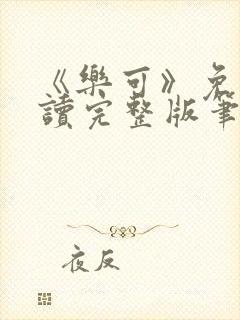 《樂可》免
讀完整版筆
夜反